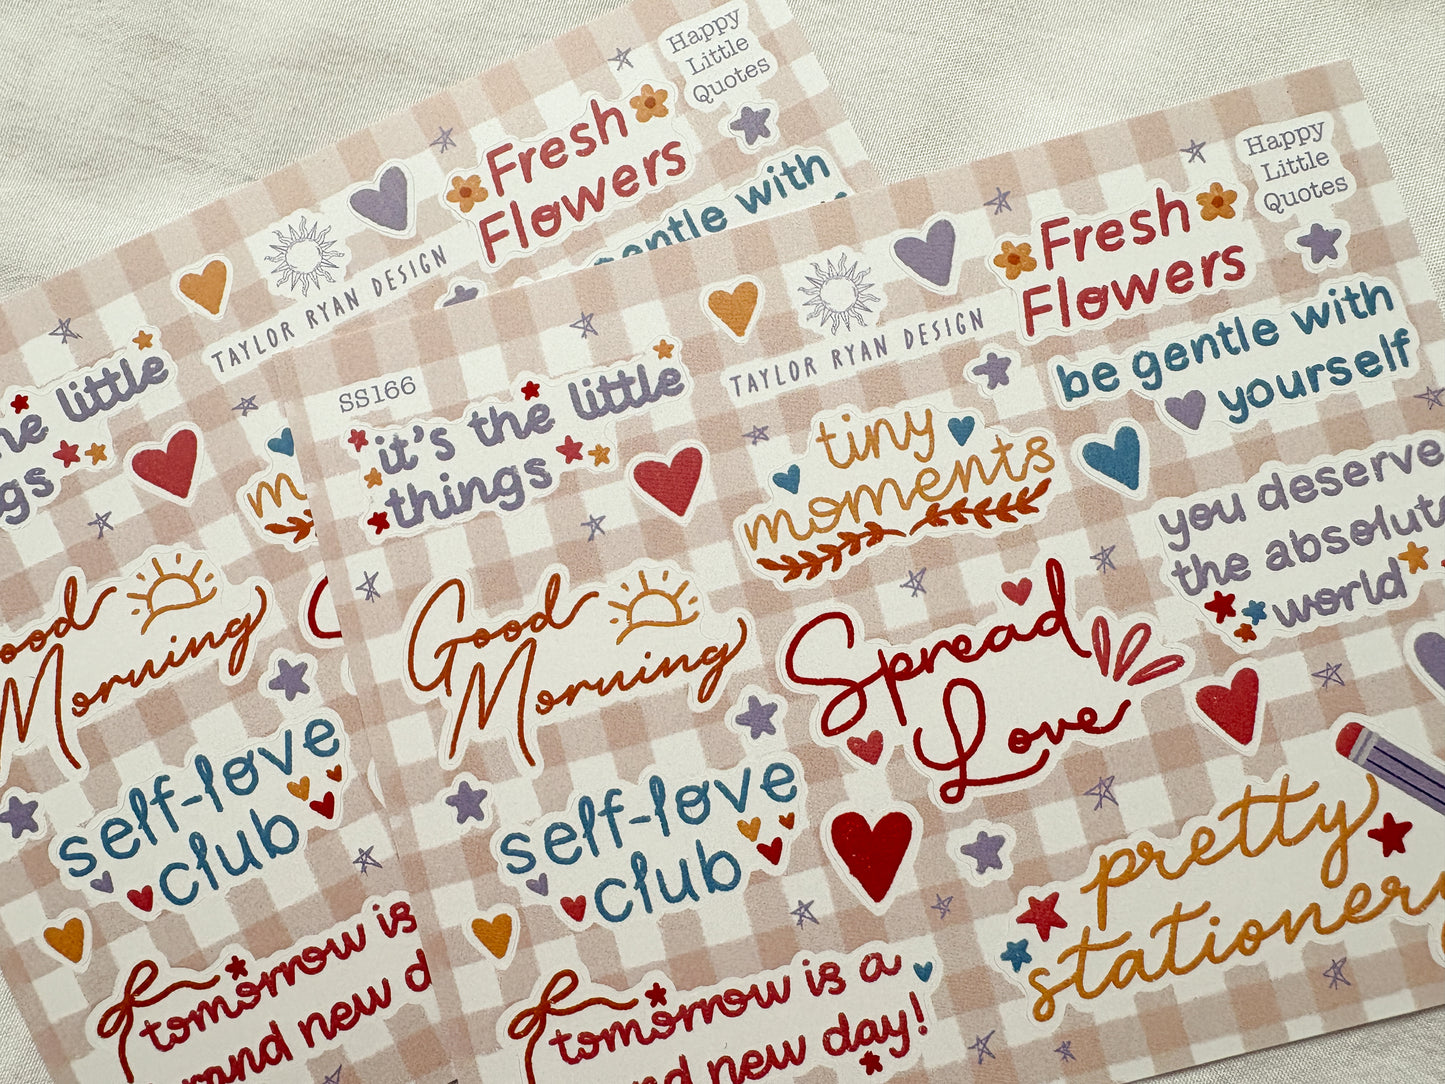 Happy
Little
Quotes
Fresh
Flowers
gentle with
TAYLOR RYAN DESIGN
the little
Good
Morning
self-love
club
tomorrow is
brand new d
Happy
Little
Quotes
Fresh
Flowers
be gentle with
yourself
TAYLOR RYAN DESIGN
SS166
it's the little
things
tiny
moments
you deserve
the absolute
world
Good
Morning
Spread
Love
self-love
club
pretty
stationery
tomorrow is a
new day!